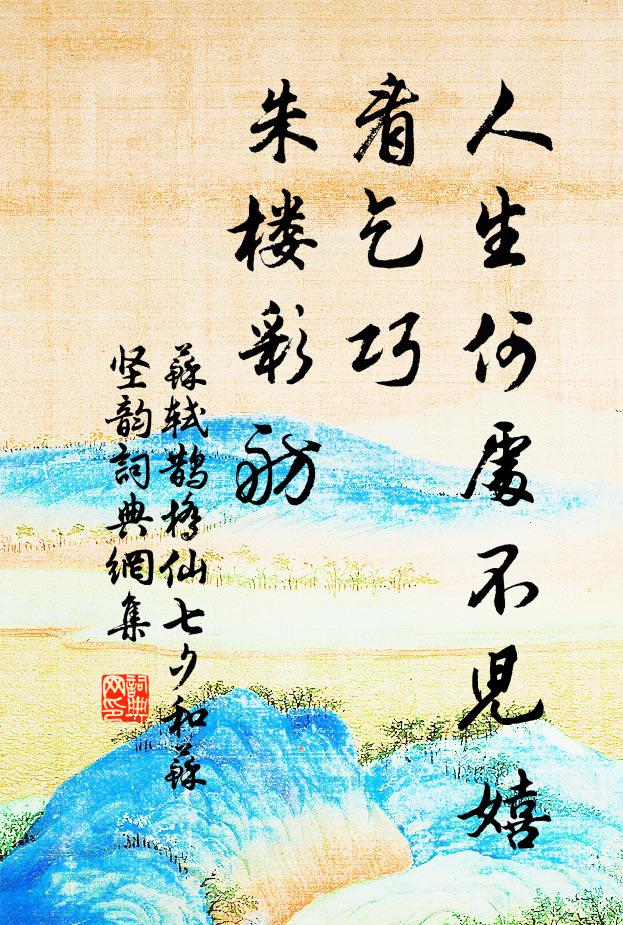 人生何處不兒嬉
看乞巧
朱楼彩舫
蘇軾鵲橋仙七夕和蘇
坚韵詞典網集
詞典
网印